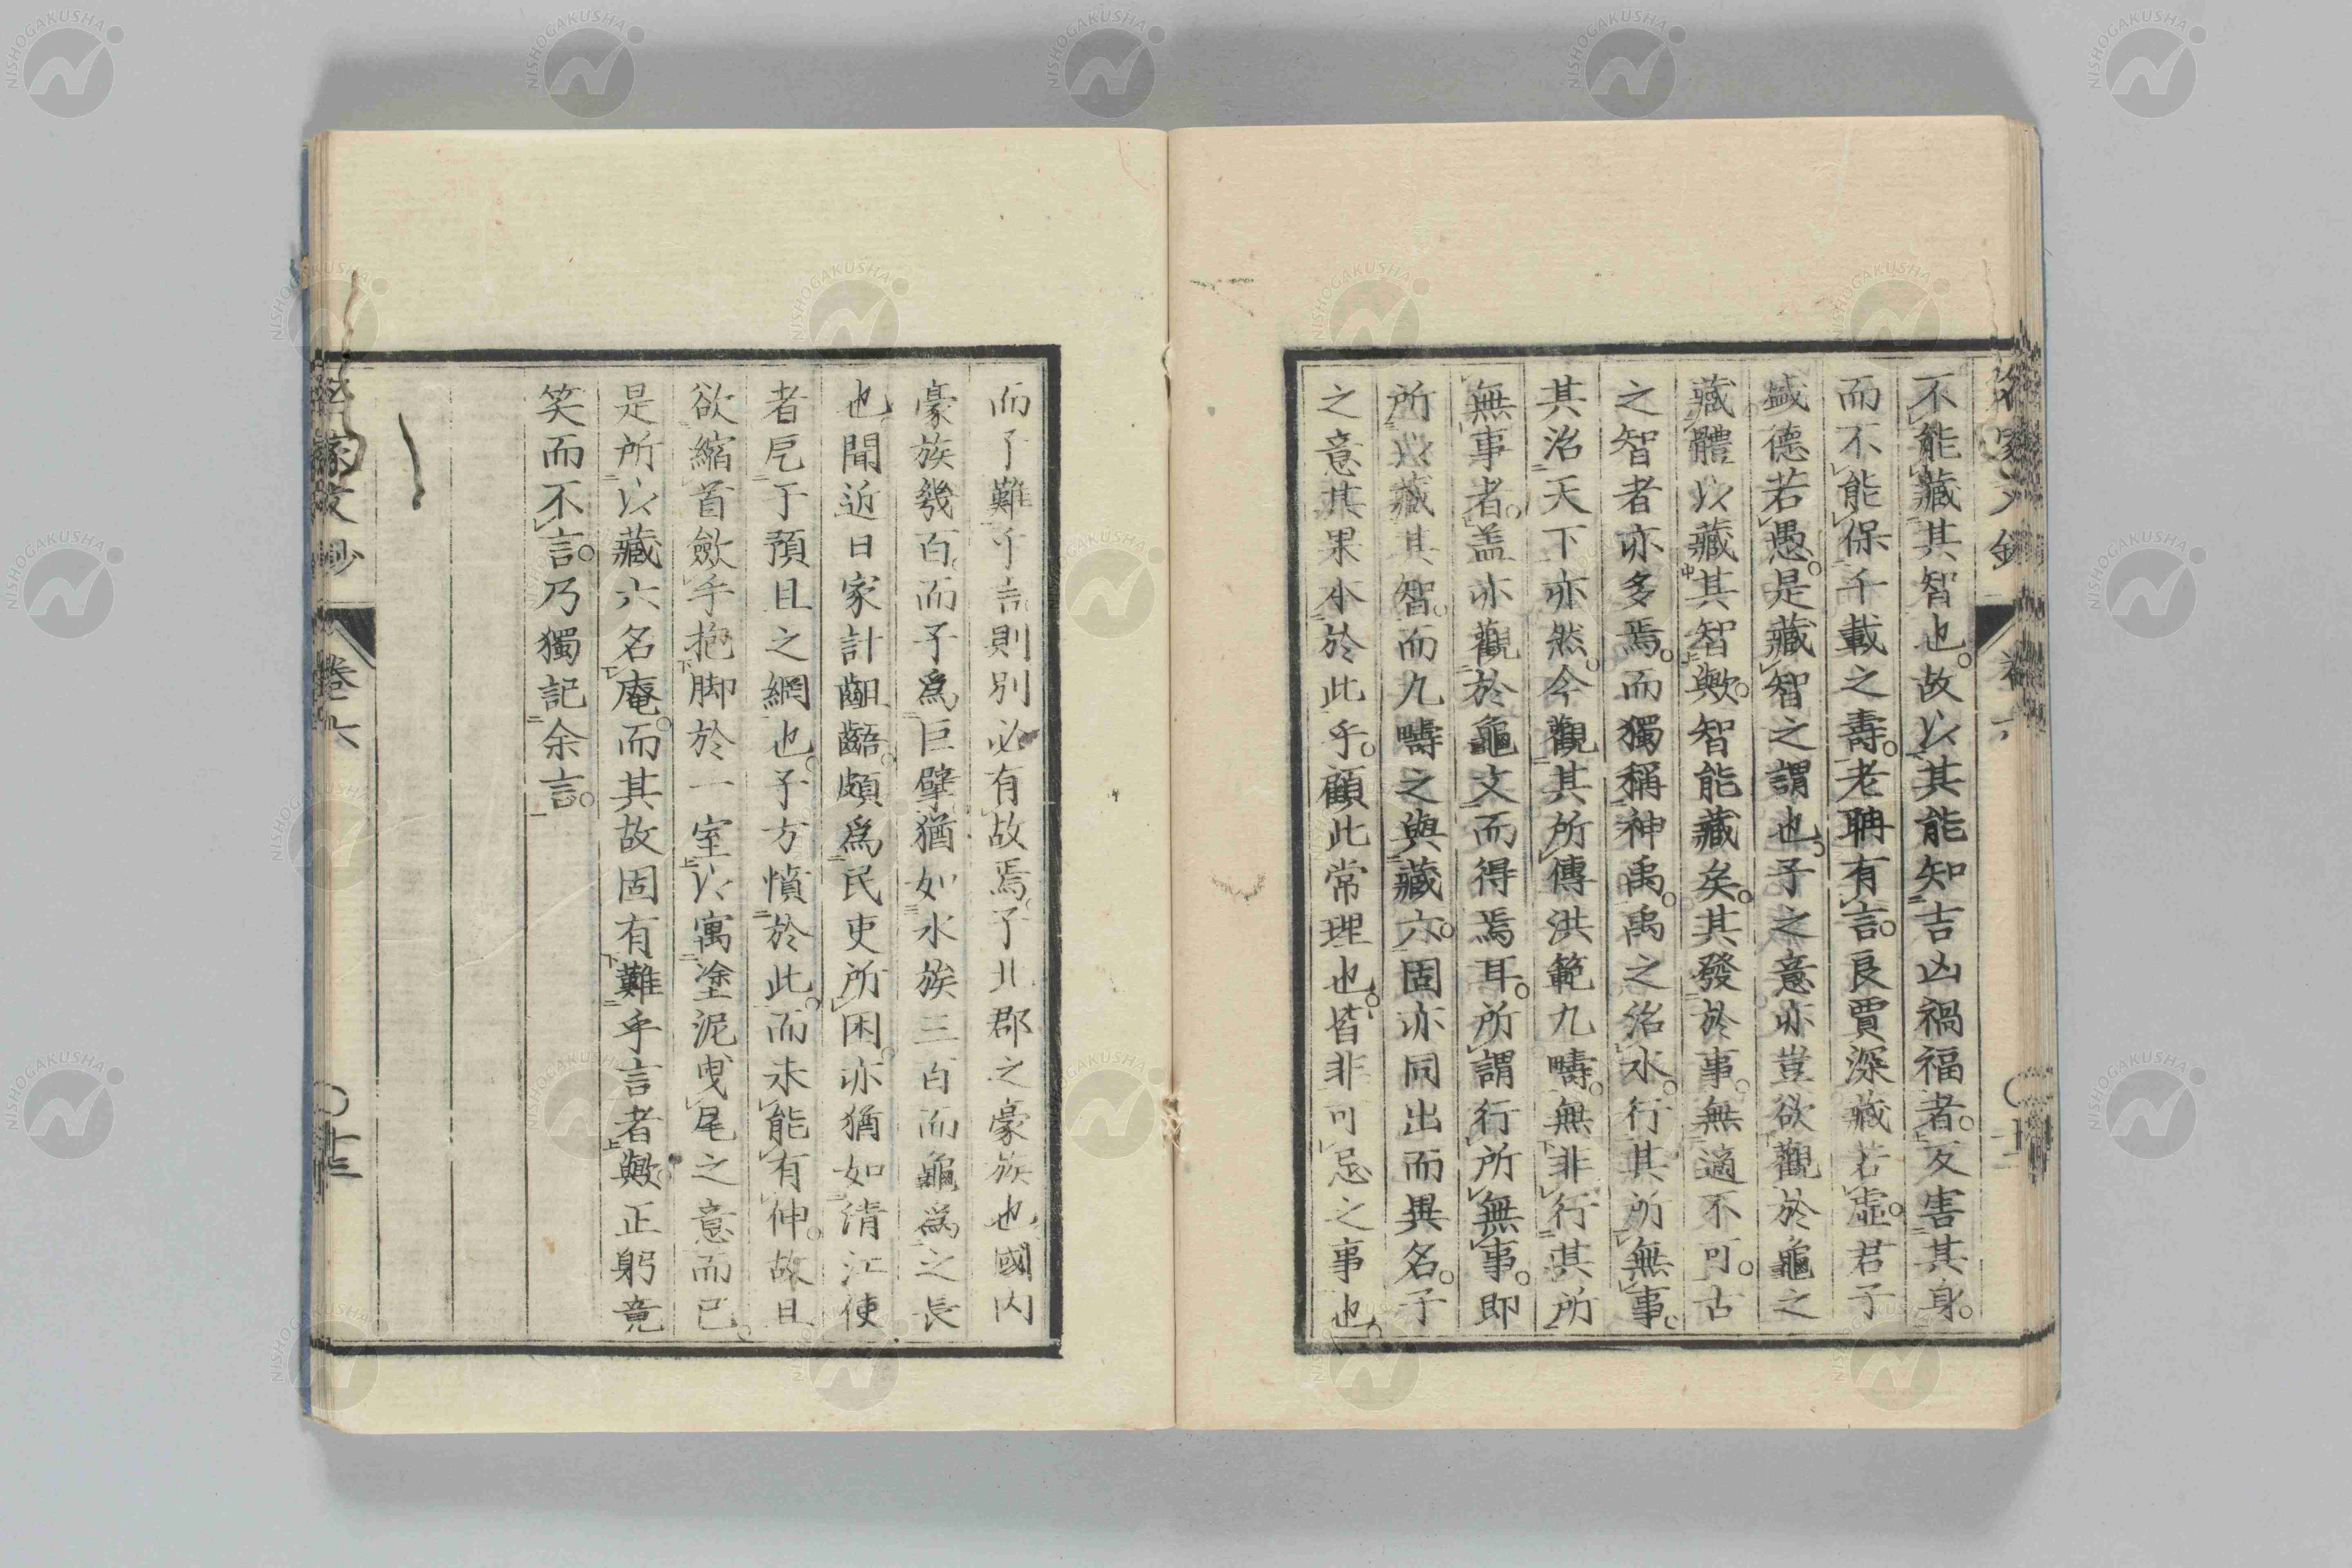 不能藏其智也。故以其能知吉凶禍福者。反害其身。
而不能保千載之壽。老聃有言。良賈深藏若虛。君子
盛德若愚。是藏智之謂也。子之意亦豈欲觀於龜之
藏體以藏其智歟。智能藏矣。其發於事。無適不可。古
之智者亦多焉。而獨稱神禹。禹之治水。行其所無事。
其治天下亦然。今觀其所傳洪範九疇。無非行其所
無事者。盖亦觀於龜文而得焉耳。所謂行所無事。即
所以藏其智。而九疇之與藏六。固亦同出而異名。子
之意其果本於此乎。顧此常理也。皆非可忌之事也。
而子難于言則別必有故焉。子北郡之豪族也國內
豪族幾百。而子爲巨擘猶如水族三百而龜爲之長
也聞近日家計齟齬。頗爲民吏所困。亦猶如清江使
者戹于預且之網也。子方憤於此。而未能有伸。故且
欲縮首斂手抱脚於一室以寓塗泥曳尾之意而已。
是所以藏六名庵。而其故固有難乎言者歟。正躬竟
笑而不言。乃獨記余言。
文鈔
卷六
十三
NISHOGAKUSHA